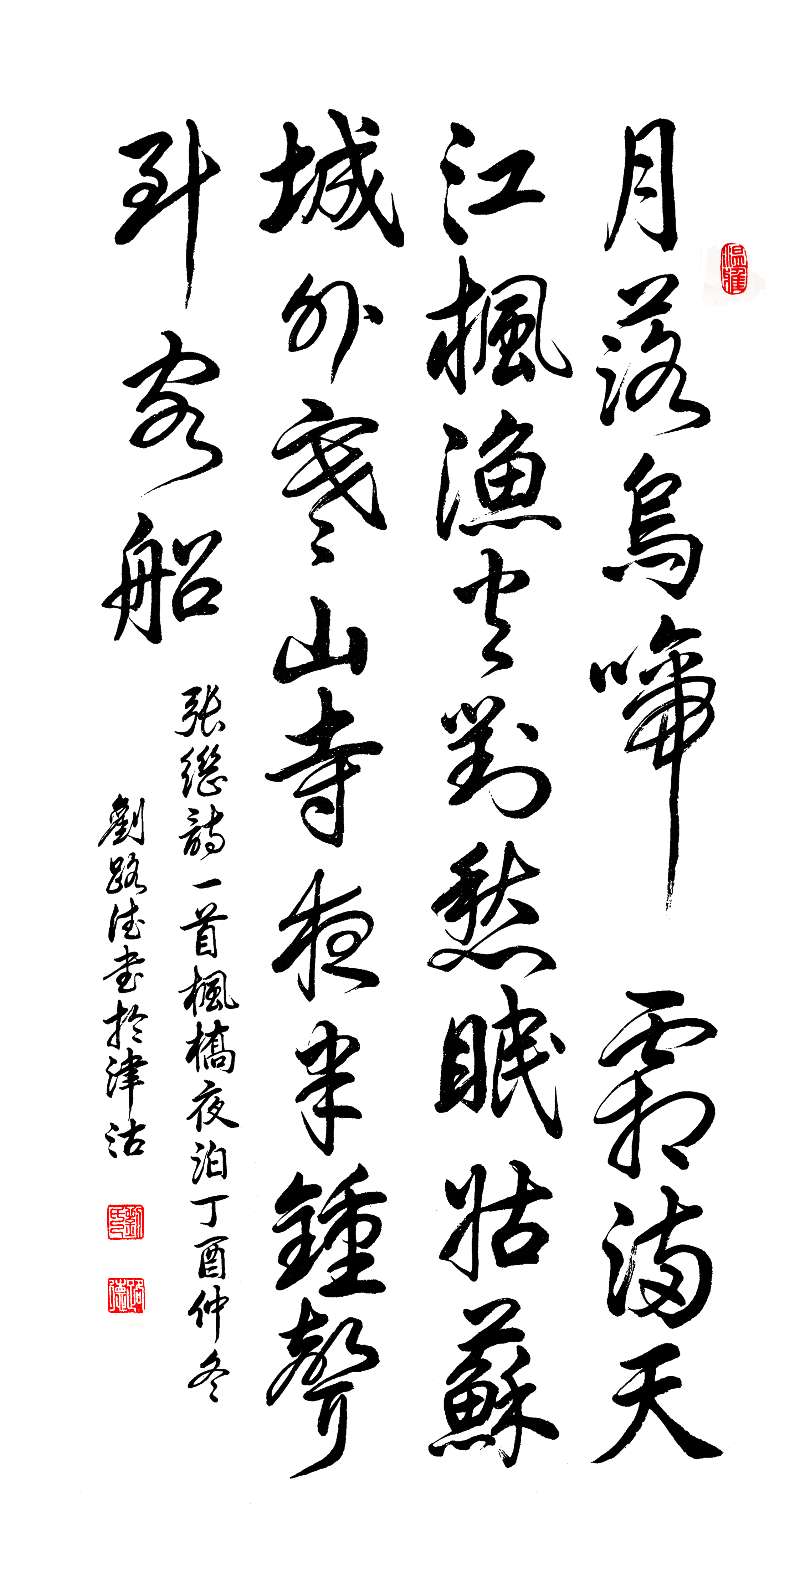 月落烏啼霜滿天
江楓漁火對愁眠姑蘇
城外寒山寺夜半鍾聲
到客船
張繼詩一首楓橋夜泊丁酉仲冬
劉路德書於津沽